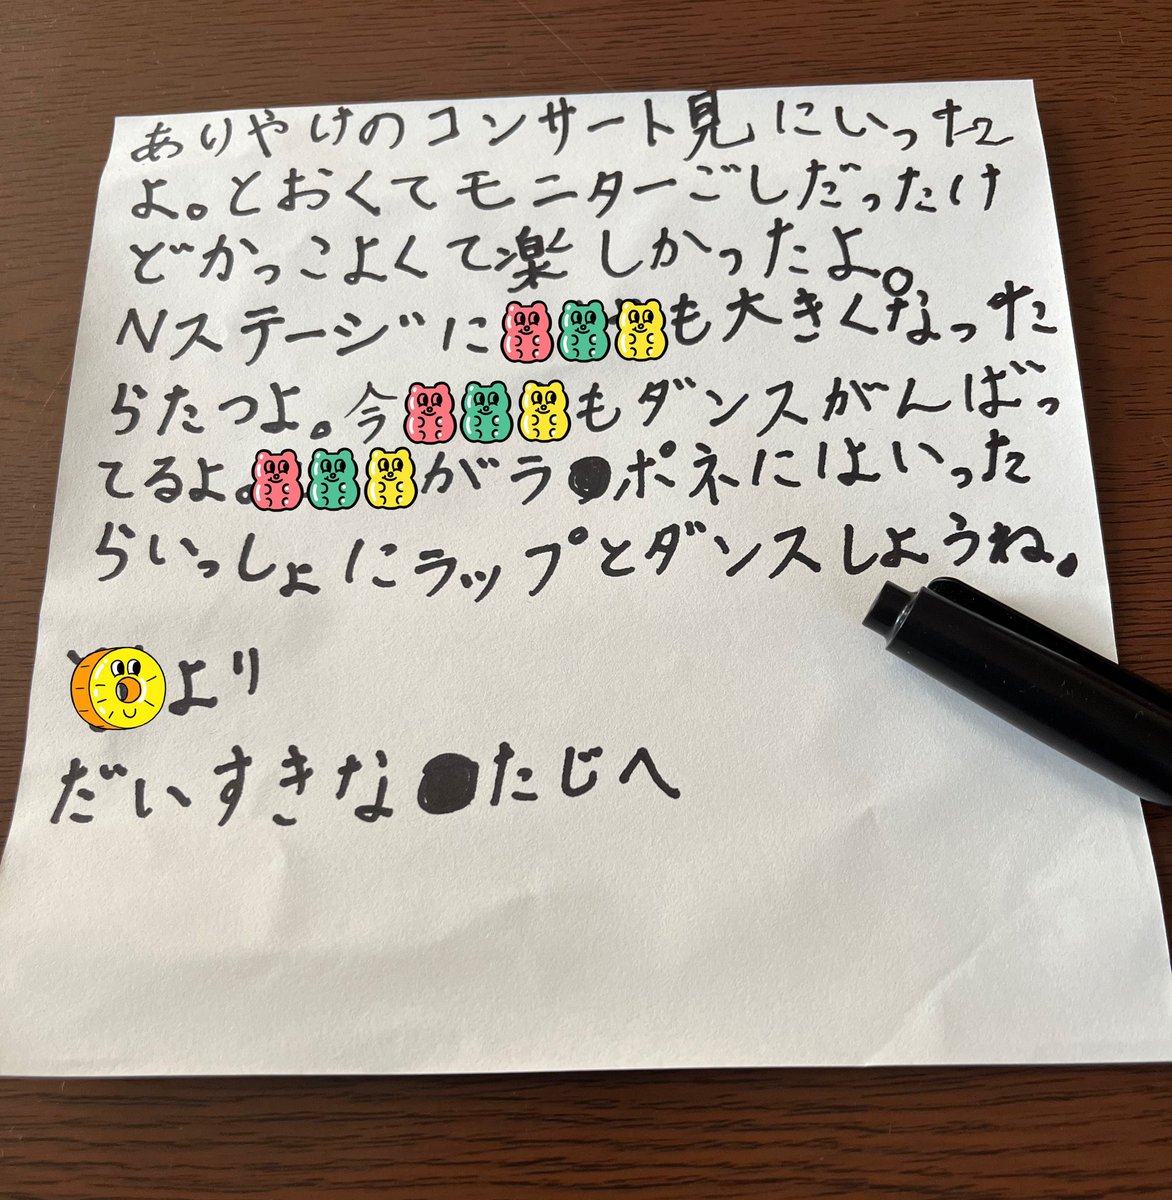 ありやけのコンサート見にいった
よ。とおくてモニターごしだったけ
どかっこよくて楽しかったよ。
Nステージに も大きくなった
らたつよ。今 もダンスがんばっ
てるよ。 がラ●ポネにはいった
らいっしょにラップとダンスしようね。
より
だいすきな●たじへ